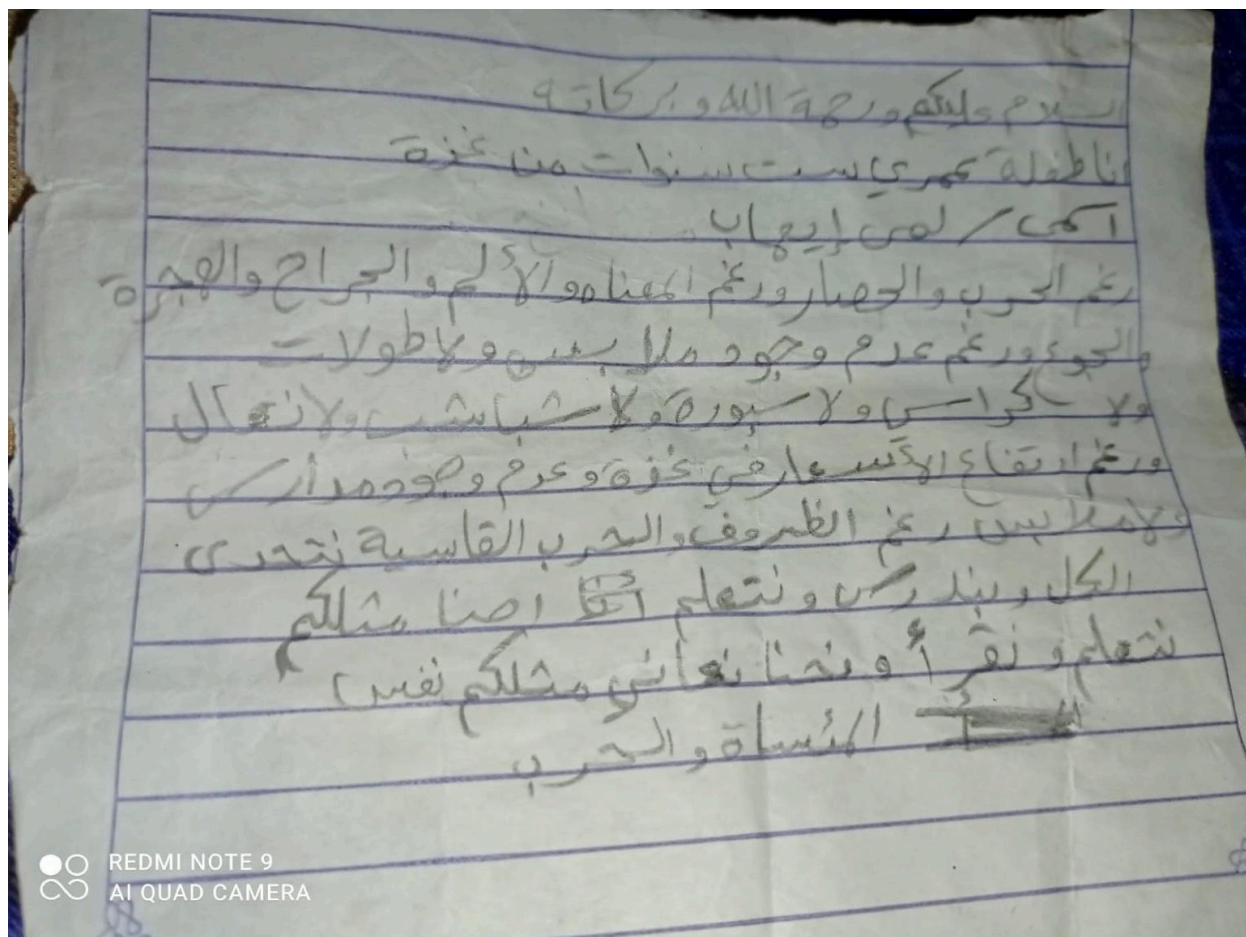 السلام عليكم ورحمة الله وبركاته
أنا طفلة عمري ست سنوات من غزة
اسمي / لمى إيهاب
رغم الحرب والحصار ورغم المعناه والألم والجراح والهجرة
والجوع ورغم عدم وجود ملابس ولا طولات
ولا كراسي ولا سبورة ولا شباشب ولا نعال
ورغم ارتفاع الأسعار في غزة وعدم وجود مدارس
ولا ملابس رغم الظروف والحرب القاسية نتحدى
الكل وبندرس ونتعلم احنا مثلكم
نتعلم ونقرأ ونحنا نعاني مثلكم نفس
المئساة والحرب
REDMI NOTE 9
AI QUAD CAMERA